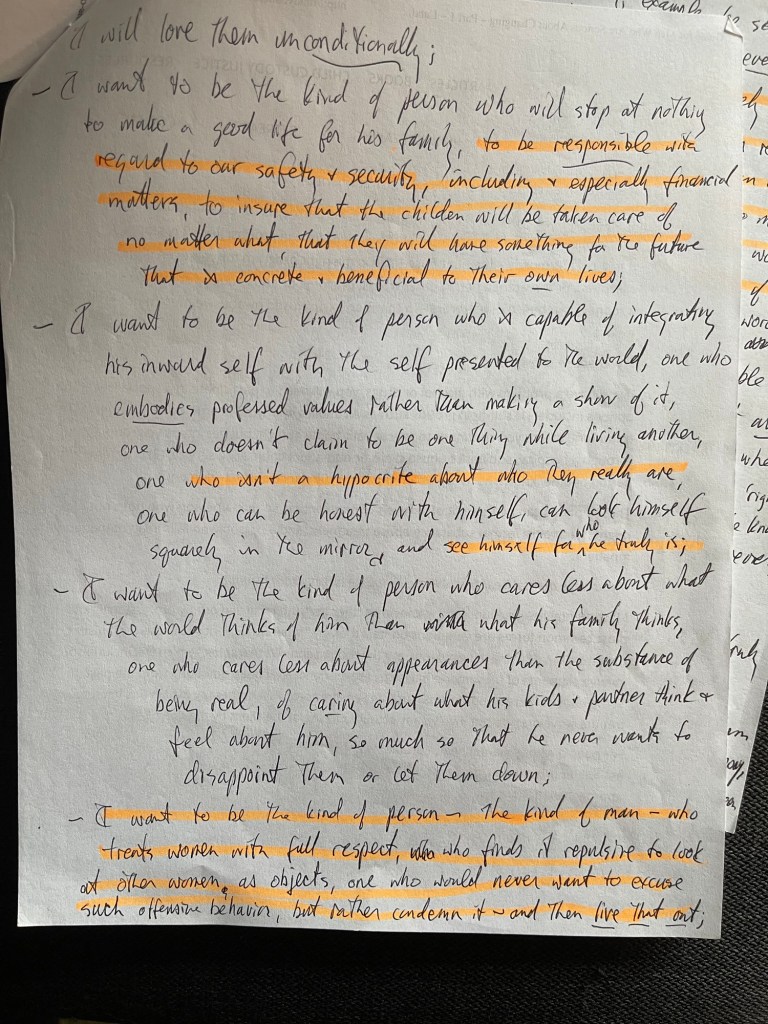 I will love them unconditionally;
- I want to be the kind of person who will stop at nothing
to make a good life for his family, to be responsible with
regard to our safety & security, including & especially financial
matters, to insure that the children will be taken care of
no matter what, that they will have something for the future
that is concrete & beneficial to their own lives;
- I want to be the kind of person who is capable of integrating
his inward self with the self presented to the world, one who
embodies professed values rather than making a show of it,
one who doesn't claim to be one thing while living another,
one who isn't a hypocrite about who they really are,
one who can be honest with himself, can look himself
squarely in the mirror, and see himself for who he truly is;
- I want to be the kind of person who cares less about what
the world thinks of him than what his family thinks,
one who cares less about appearances than the substance of
being real, of caring about what his kids & partner think &
feel about him, so much so that he never wants to
disappoint them or let them down;
- I want to be the kind of person - the kind of man - who
treats women with full respect, who finds it repulsive to look
at other women as objects, one who would never want to excuse
such offensive behavior, but rather condemn it - and then live that out;